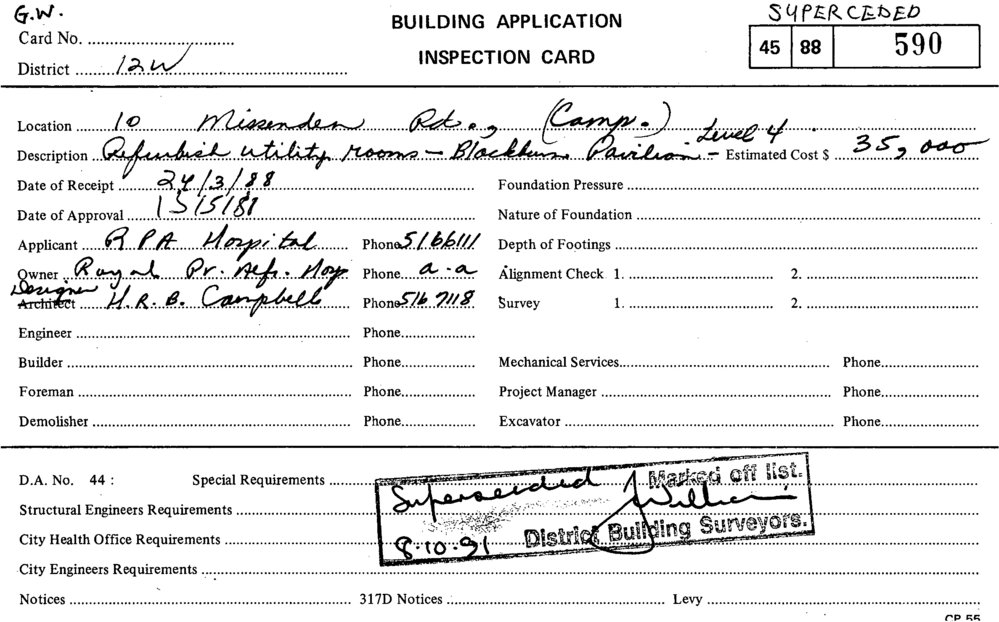 G.W.
Card No.
District 12W
BUILDING APPLICATION
INSPECTION CARD
SUPERCEDED
45 88 590
Location 10 Missenden Rd., (Camp.)
Description Refurbish utility rooms - Blackburn Pavilion - Level 4 Estimated Cost $ 35,000
Date of Receipt 24/3/88 Foundation Pressure
Date of Approval Nature of Foundation
Applicant R P A Hospital Phone 5166111 Depth of Footings
Owner Royal Pr. Alf. Hosp Phone a.a Alignment Check 1. 2.
Designer
Architect H.R.B. Campbell Phone 516 7118 Survey 1. 2.
Engineer Phone
Builder Phone Mechanical Services Phone
Foreman Phone Project Manager Phone
Demolisher Phone Excavator Phone
D.A. No. 44 : Special Requirements
Structural Engineers Requirements
City Health Office Requirements
City Engineers Requirements
Notices 317D Notices Levy
Superseeded Marked off list.
Williams
8.10.91 District Building Surveyors.
CP 55